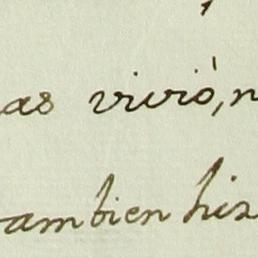 as vivió, n
tambien his